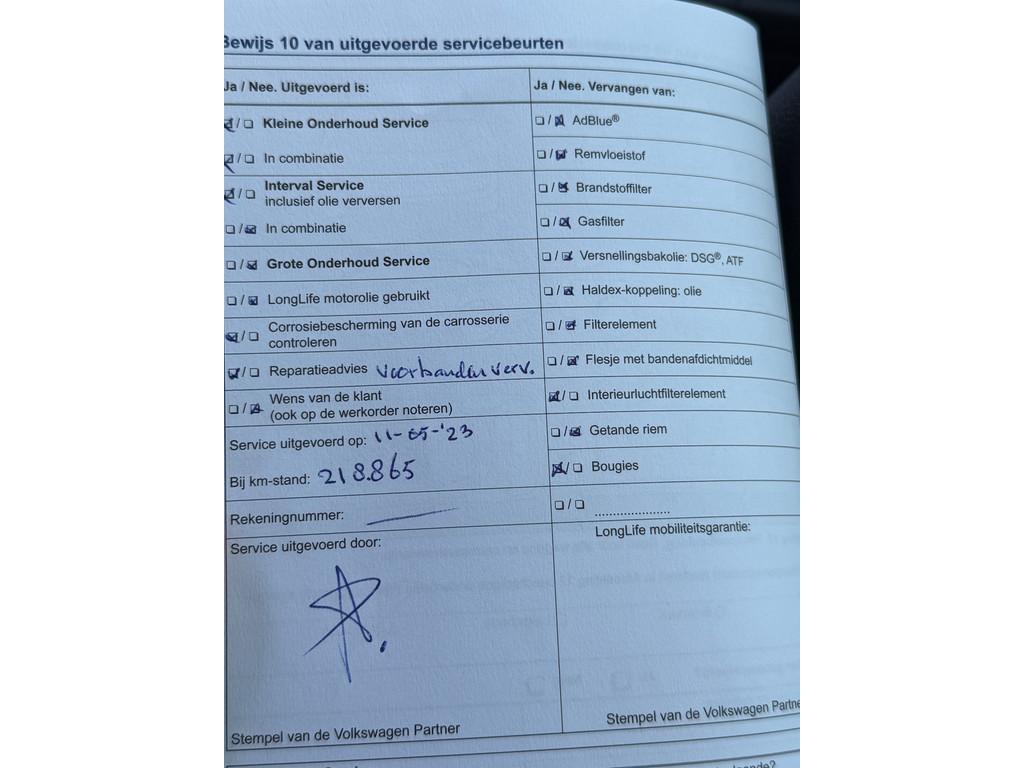 Bewijs 10 van uitgevoerde servicebeurten
Ja / Nee. Uitgevoerd is:
☑/☐ Kleine Onderhoud Service
☑/☐ In combinatie
☑/☐ Interval Service
inclusief olie verversen
☐/☑ In combinatie
☐/☑ Grote Onderhoud Service
☐/☑ LongLife motorolie gebruikt
☑/☐ Corrosiebescherming van de carrosserie
controleren
☑/☐ Reparatieadvies voorbanden verv.
☐/☑ Wens van de klant
(ook op de werkorder noteren)
Service uitgevoerd op: 11-05-'23
Bij km-stand: 218.865
Rekeningnummer:
Service uitgevoerd door:
Stempel van de Volkswagen Partner
Ja / Nee. Vervangen van:
☐/☑ AdBlue®
☐/☑ Remvloeistof
☐/☑ Brandstoffilter
☐/☑ Gasfilter
☐/☑ Versnellingsbakolie: DSG®, ATF
☐/☑ Haldex-koppeling: olie
☐/☑ Filterelement
☐/☑ Flesje met bandenafdichtmiddel
☑/☐ Interieurluchtfilterelement
☐/☑ Getande riem
☑/☐ Bougies
☐/☐ ....................
LongLife mobiliteitsgarantie:
Stempel van de Volkswagen Partne